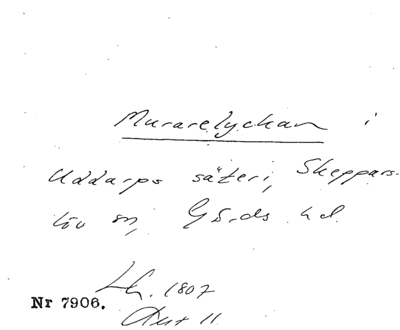 Murarelyckan i
Uddarps säteri, Skeppars-
löv sn, Gärds hd.
Lh. 1807
Nr 7906.
Akt 11